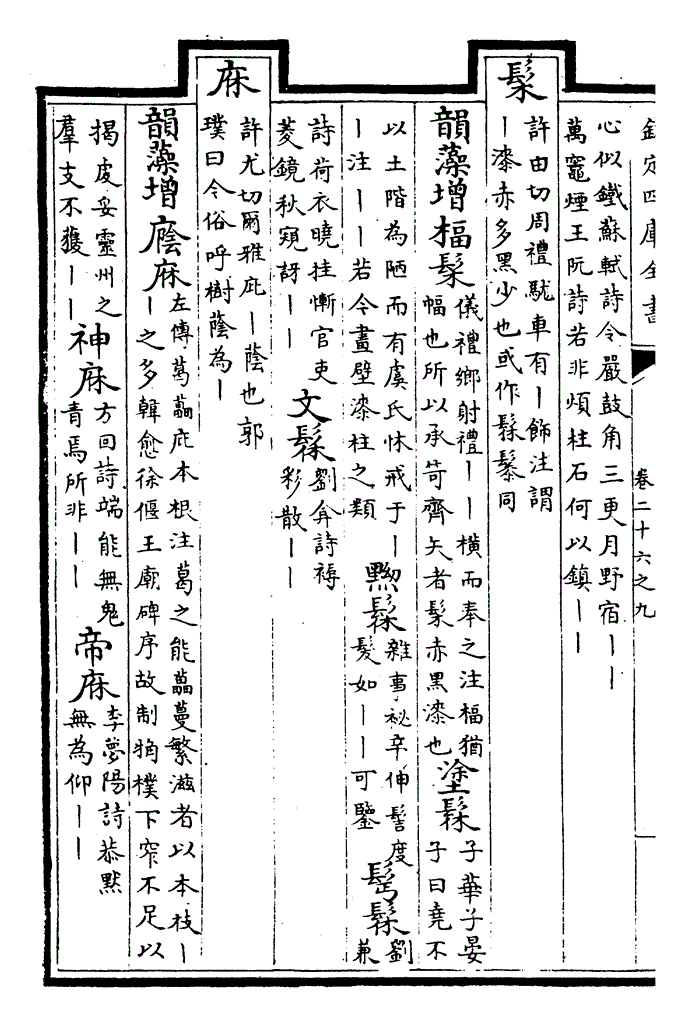 欽定四庫全書
卷二十六之九
心似鐵蘇軾詩令嚴鼓角三更月野宿丨丨
萬竈煙王阮詩若非頑柱石何以鎮丨丨
髹
許由切周禮駹車有丨飾注謂
丨漆赤多黑少也或作髤䰍同
韻藻增
楅髹
儀禮鄉射禮丨丨橫而奉之注楅猶
幅也所以承笴齊矢者髹赤黑漆也
塗髹
子華子晏
子曰堯不
以土階為陋而有虞氏怵戒于丨
丨注丨丨若今畫壁漆柱之類
黝髹
雜事祕辛伸髻度
髮如丨丨可鑒
髣髹
劉
兼
詩荷衣曉挂慚官吏
菱鏡秋窺訝丨丨
文髹
劉弇詩褥
彩散丨丨
庥
許尤切爾雅庇丨蔭也郭
璞曰今俗呼樹蔭為丨
韻藻增
廕庥
左傳葛藟庇本根注葛之能藟蔓繁滋者以本枝丨
丨之多韓愈徐偃王廟碑序故制觕樸下窄不足以
揭虔妥靈州之
羣支不獲丨丨
神庥
方回詩端能無鬼
青焉所非丨丨
帝庥
李夢陽詩恭默
無為仰丨丨